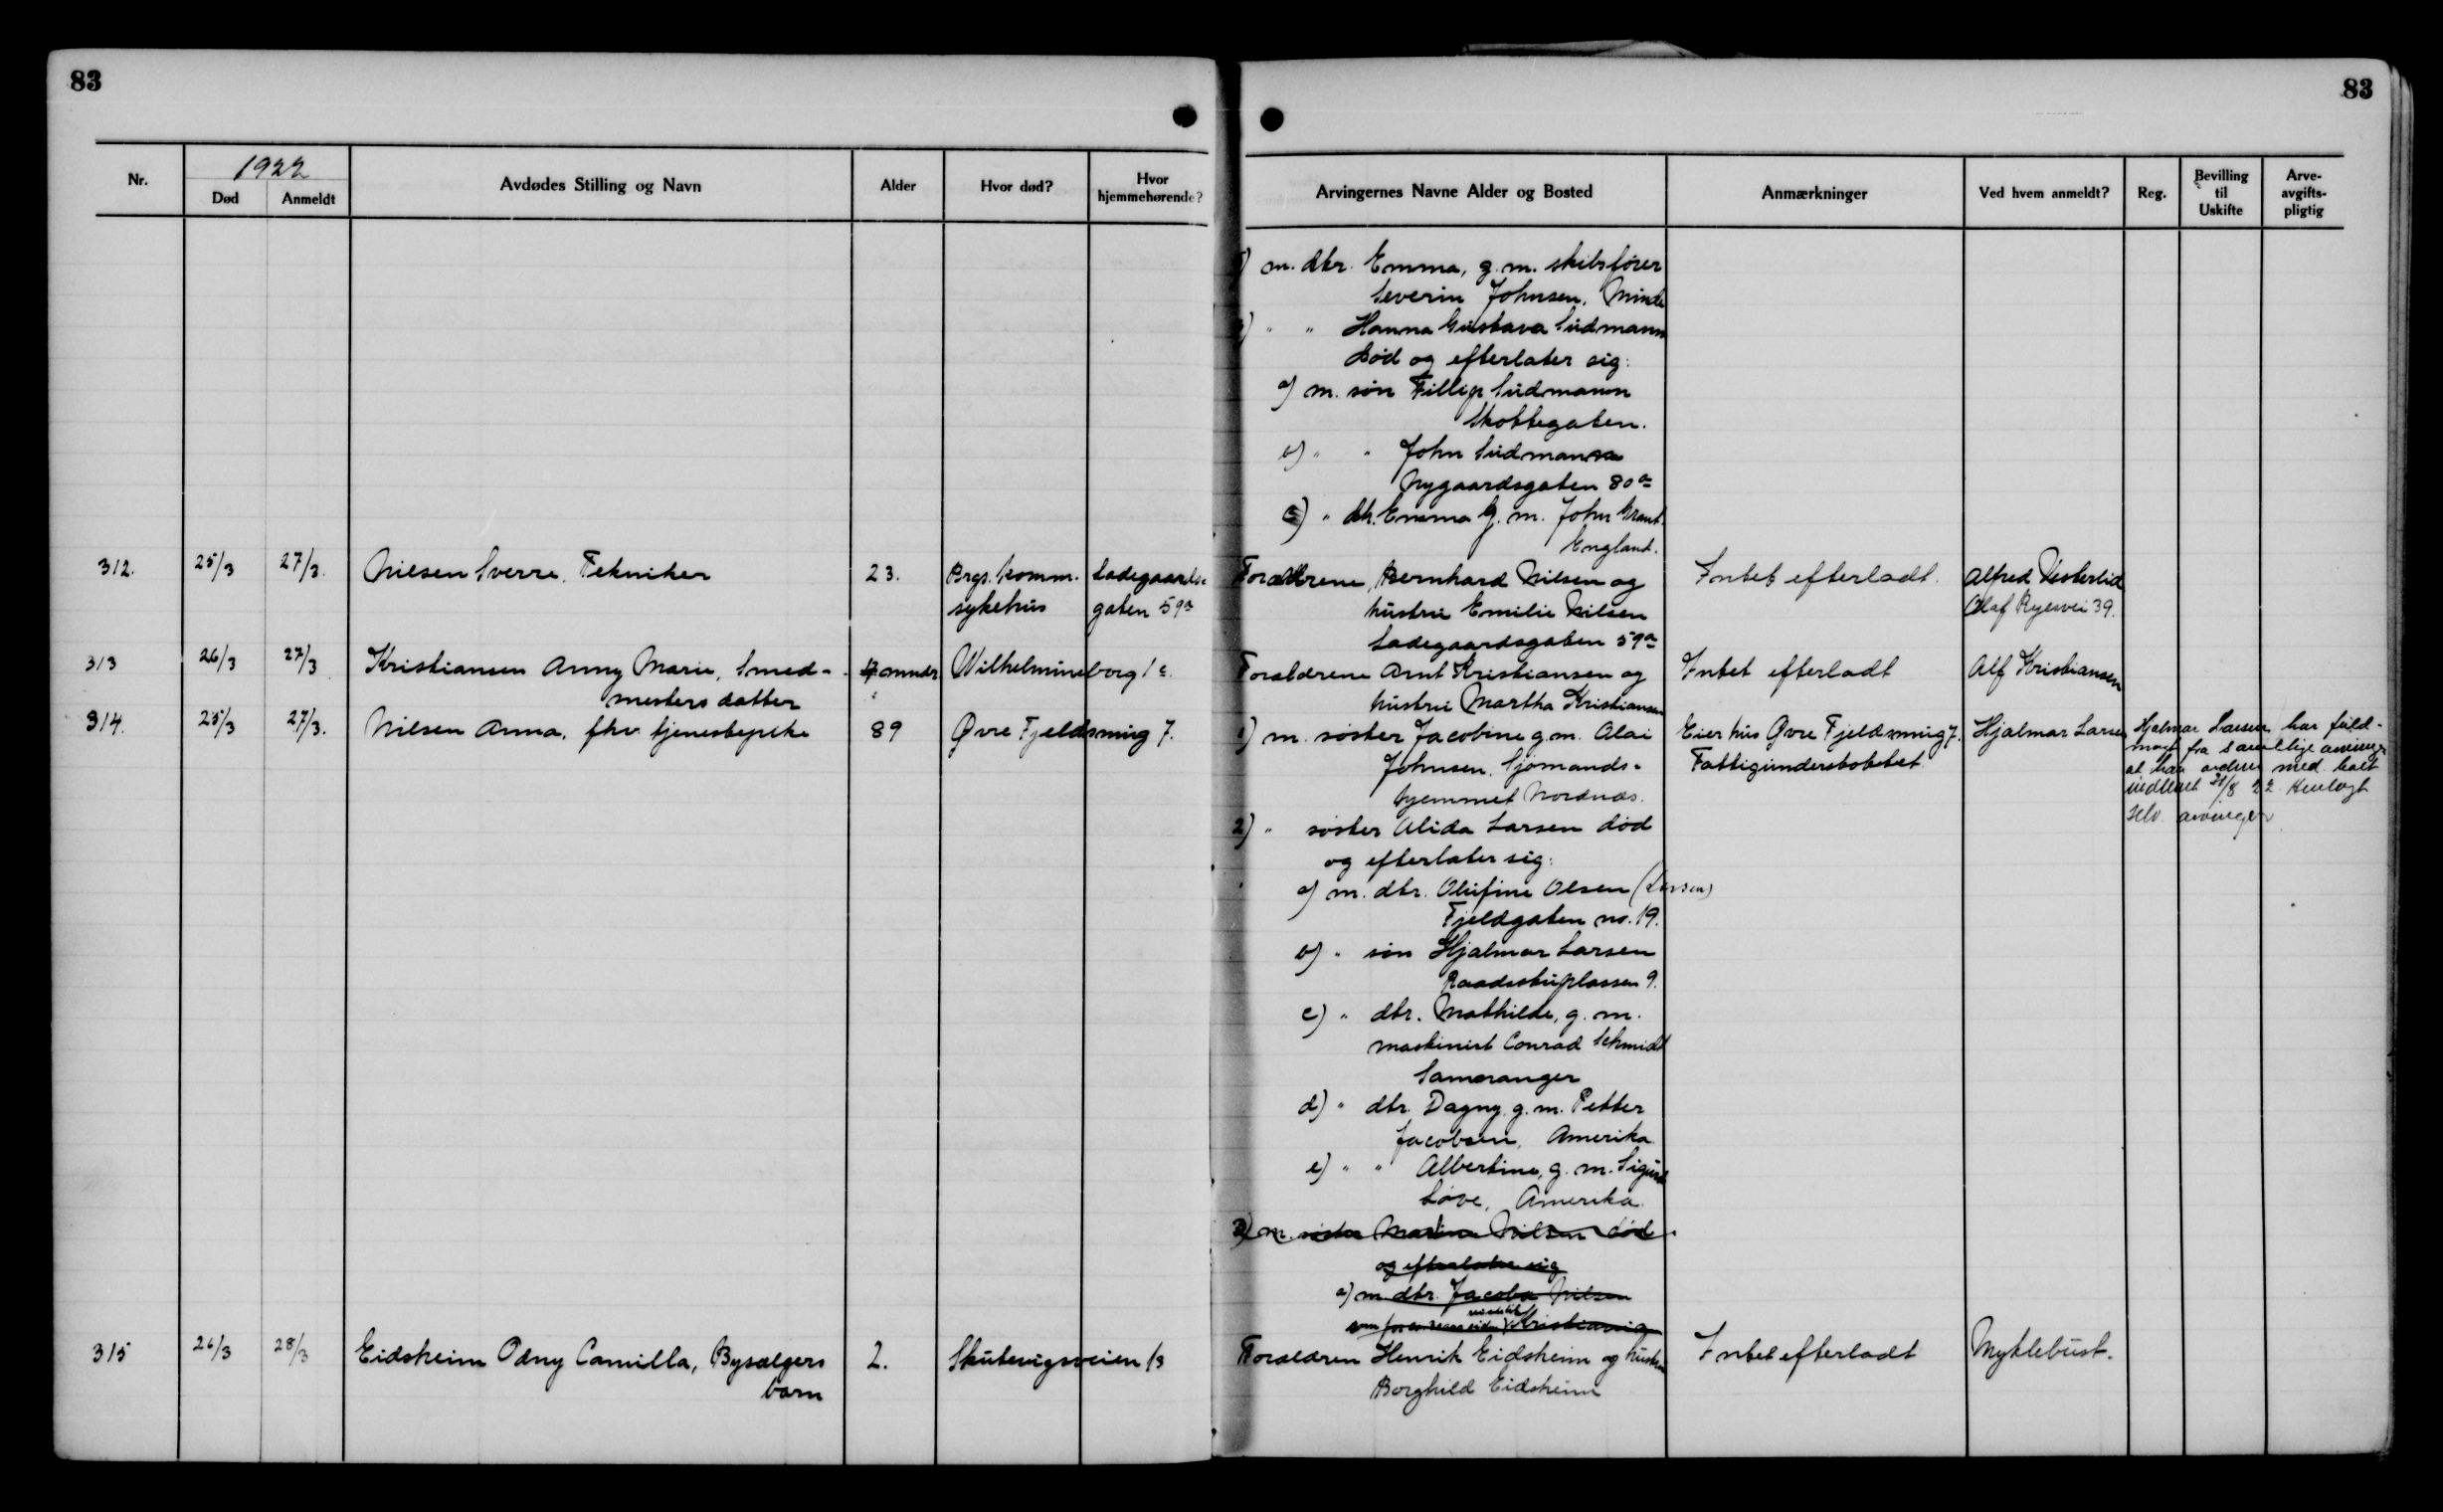 83
83
Nr.
1922
Død
Anmeldt
Avdødes Stilling og Navn
Alder
Hvor død?
Hvor hjemmehørende?
Arvingernes Navne Alder og Bosted
Anmærkninger
Ved hvem anmeldt?
Reg.
Bevilling til Uskifte
Arve-avgifts-pligtig
m. dtr. Emma, g. m. skibsfører
Severin Johnsen. Minde
" " Hanna Gustava Südmann
død og efterlater sig:
a) m. søn Fillip Südmann
Skottegaten.
b) " " John Südmann
Nygaardsgaten 80a
c) " dtr. Emma g. m. John Grant.
England.
312. 25/3 27/3. Nilsen Sverre. Tekniker 23. Brgs. komm. Ladegaards-
sykehus gaten 59a
Forældrene Bernhard Nilsen og
hustru Emilie Nilsen
Ladegaardsgaten 59a
Intet efterladt. Alfred Vesterlid
Olaf Ryesvei 39.
313 26/3 27/3 Kristiansen Anny Marie, Smed-
mesters datter
mndr. Wilhelmineborg 1c.
Forældrene Arnt Kristiansen og
hustru Martha Kristiansen
Intet efterladt Alf Kristiansen
314. 25/3 27/3. Nilsen Anna, fhv. tjenestepike 89 Øvre Fjeldsmug 7.
1) m. søster Jacobine g. m. Alai
Johnsen. Sjømands-
hjemmet Nordnæs.
Eier hus Øvre Fjeldsmug 7.
Fattigunderstøttet
Hjalmar Larsen
Hjalmar Larsen har fuld-
magt fra samtlige arvinger
at han ordner med
21/8 22
arvinger
2) " søster Alida Larsen død
og efterlater sig:
a) m. dtr. Olufine Olsen (Larsen)
Fjeldgaten no. 19.
b) " søn Hjalmar Larsen
Raadstuplassen 9.
c) " dtr. Mathilde, g. m.
maskinist Conrad Schmidt
Samnanger
d) " dtr. Dagny g. m. Petter
Jacobsen, Amerika
e) " " Albertine, g. m. Sigurd
Løve, Amerika.
3) m. søster Martine Nilsen død
og efterlater sig
a) m. dtr. Jacoba Nilsen
Kristiania
315 26/3 28/3 Eidsheim Odny Camilla, Bysælgers
barn
2. Skuteviksveien 13
Forældren Henrik Eidsheim og hustru
Borghild Eidsheim
Intet efterladt Myklebust.